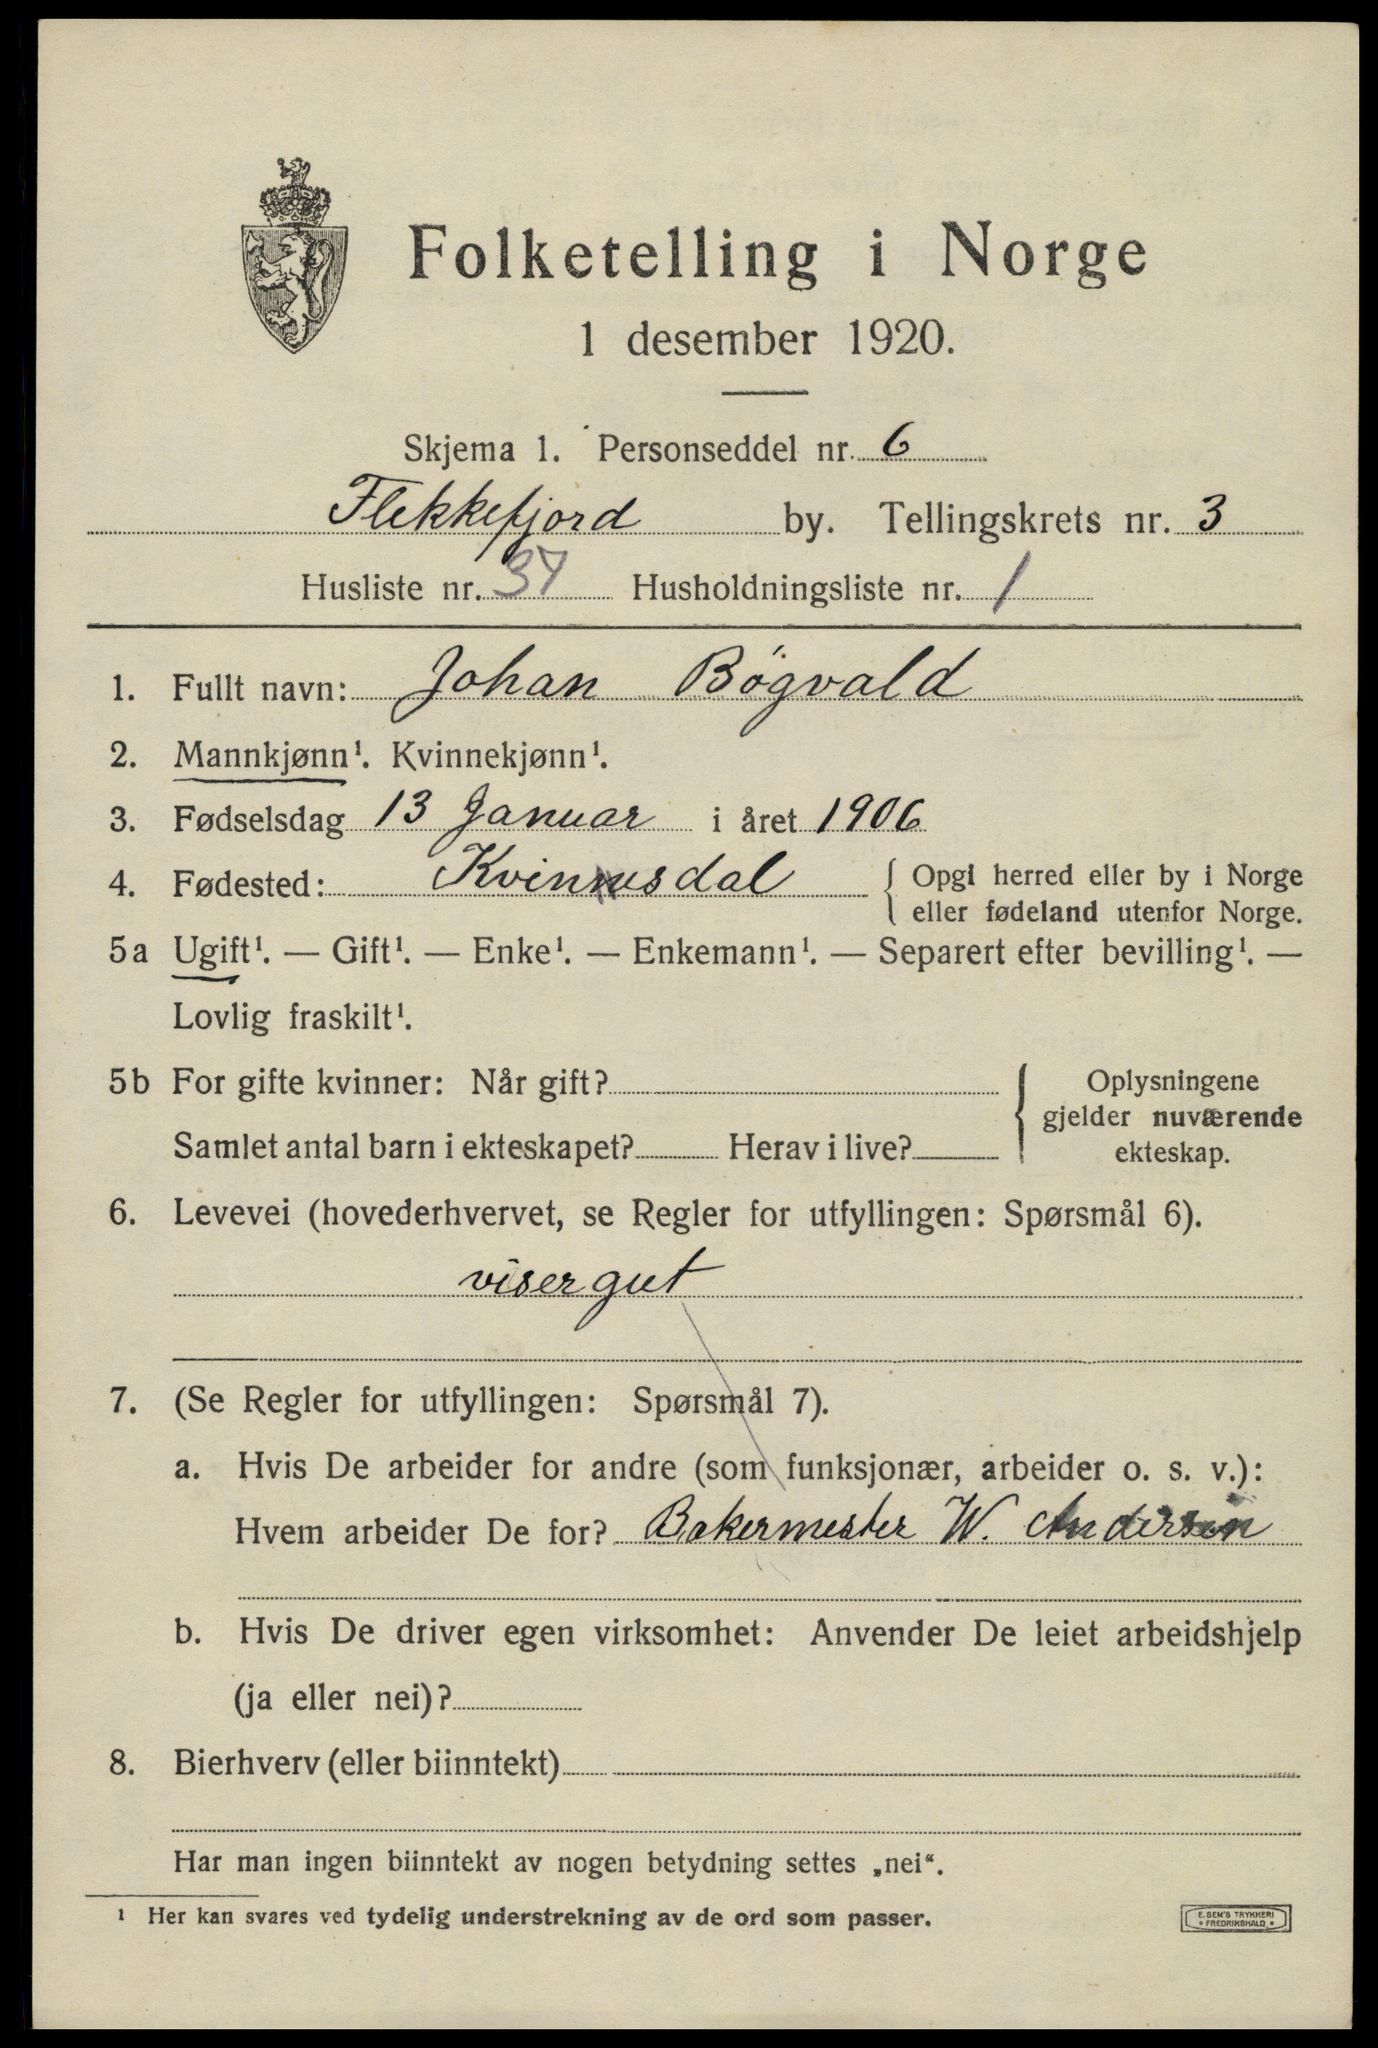 Folketelling i Norge
1 desember 1920.
Skjema 1. Personseddel nr. 6
Flekkefjord by. Tellingskrets nr. 3
Husliste nr. 37 Husholdningsliste nr. 1
1. Fullt navn: Johan Bøgvald
2. Mannkjønn¹. Kvinnekjønn¹.
3. Fødselsdag 13 Januar i året 1906
4. Fødested: Kvinnesdal { Opgi herred eller by i Norge
eller fødeland utenfor Norge.
5a Ugift¹. — Gift¹. — Enke¹. — Enkemann¹. — Separert efter bevilling¹. —
Lovlig fraskilt¹.
5b For gifte kvinner: Når gift?
Samlet antal barn i ekteskapet? Herav i live?
Oplysningene
gjelder nuværende
ekteskap.
6. Levevei (hovederhvervet, se Regler for utfyllingen: Spørsmål 6).
visergut
7. (Se Regler for utfyllingen: Spørsmål 7).
a. Hvis De arbeider for andre (som funksjonær, arbeider o. s. v.):
Hvem arbeider De for? Bakermester W. Andersen
b. Hvis De driver egen virksomhet: Anvender De leiet arbeidshjelp
(ja eller nei)?
8. Bierhverv (eller biinntekt)
Har man ingen biinntekt av nogen betydning settes „nei“.
¹ Her kan svares ved tydelig understrekning av de ord som passer.
E. SEM'S TRYKKERI
* FREDRIKSHALD *